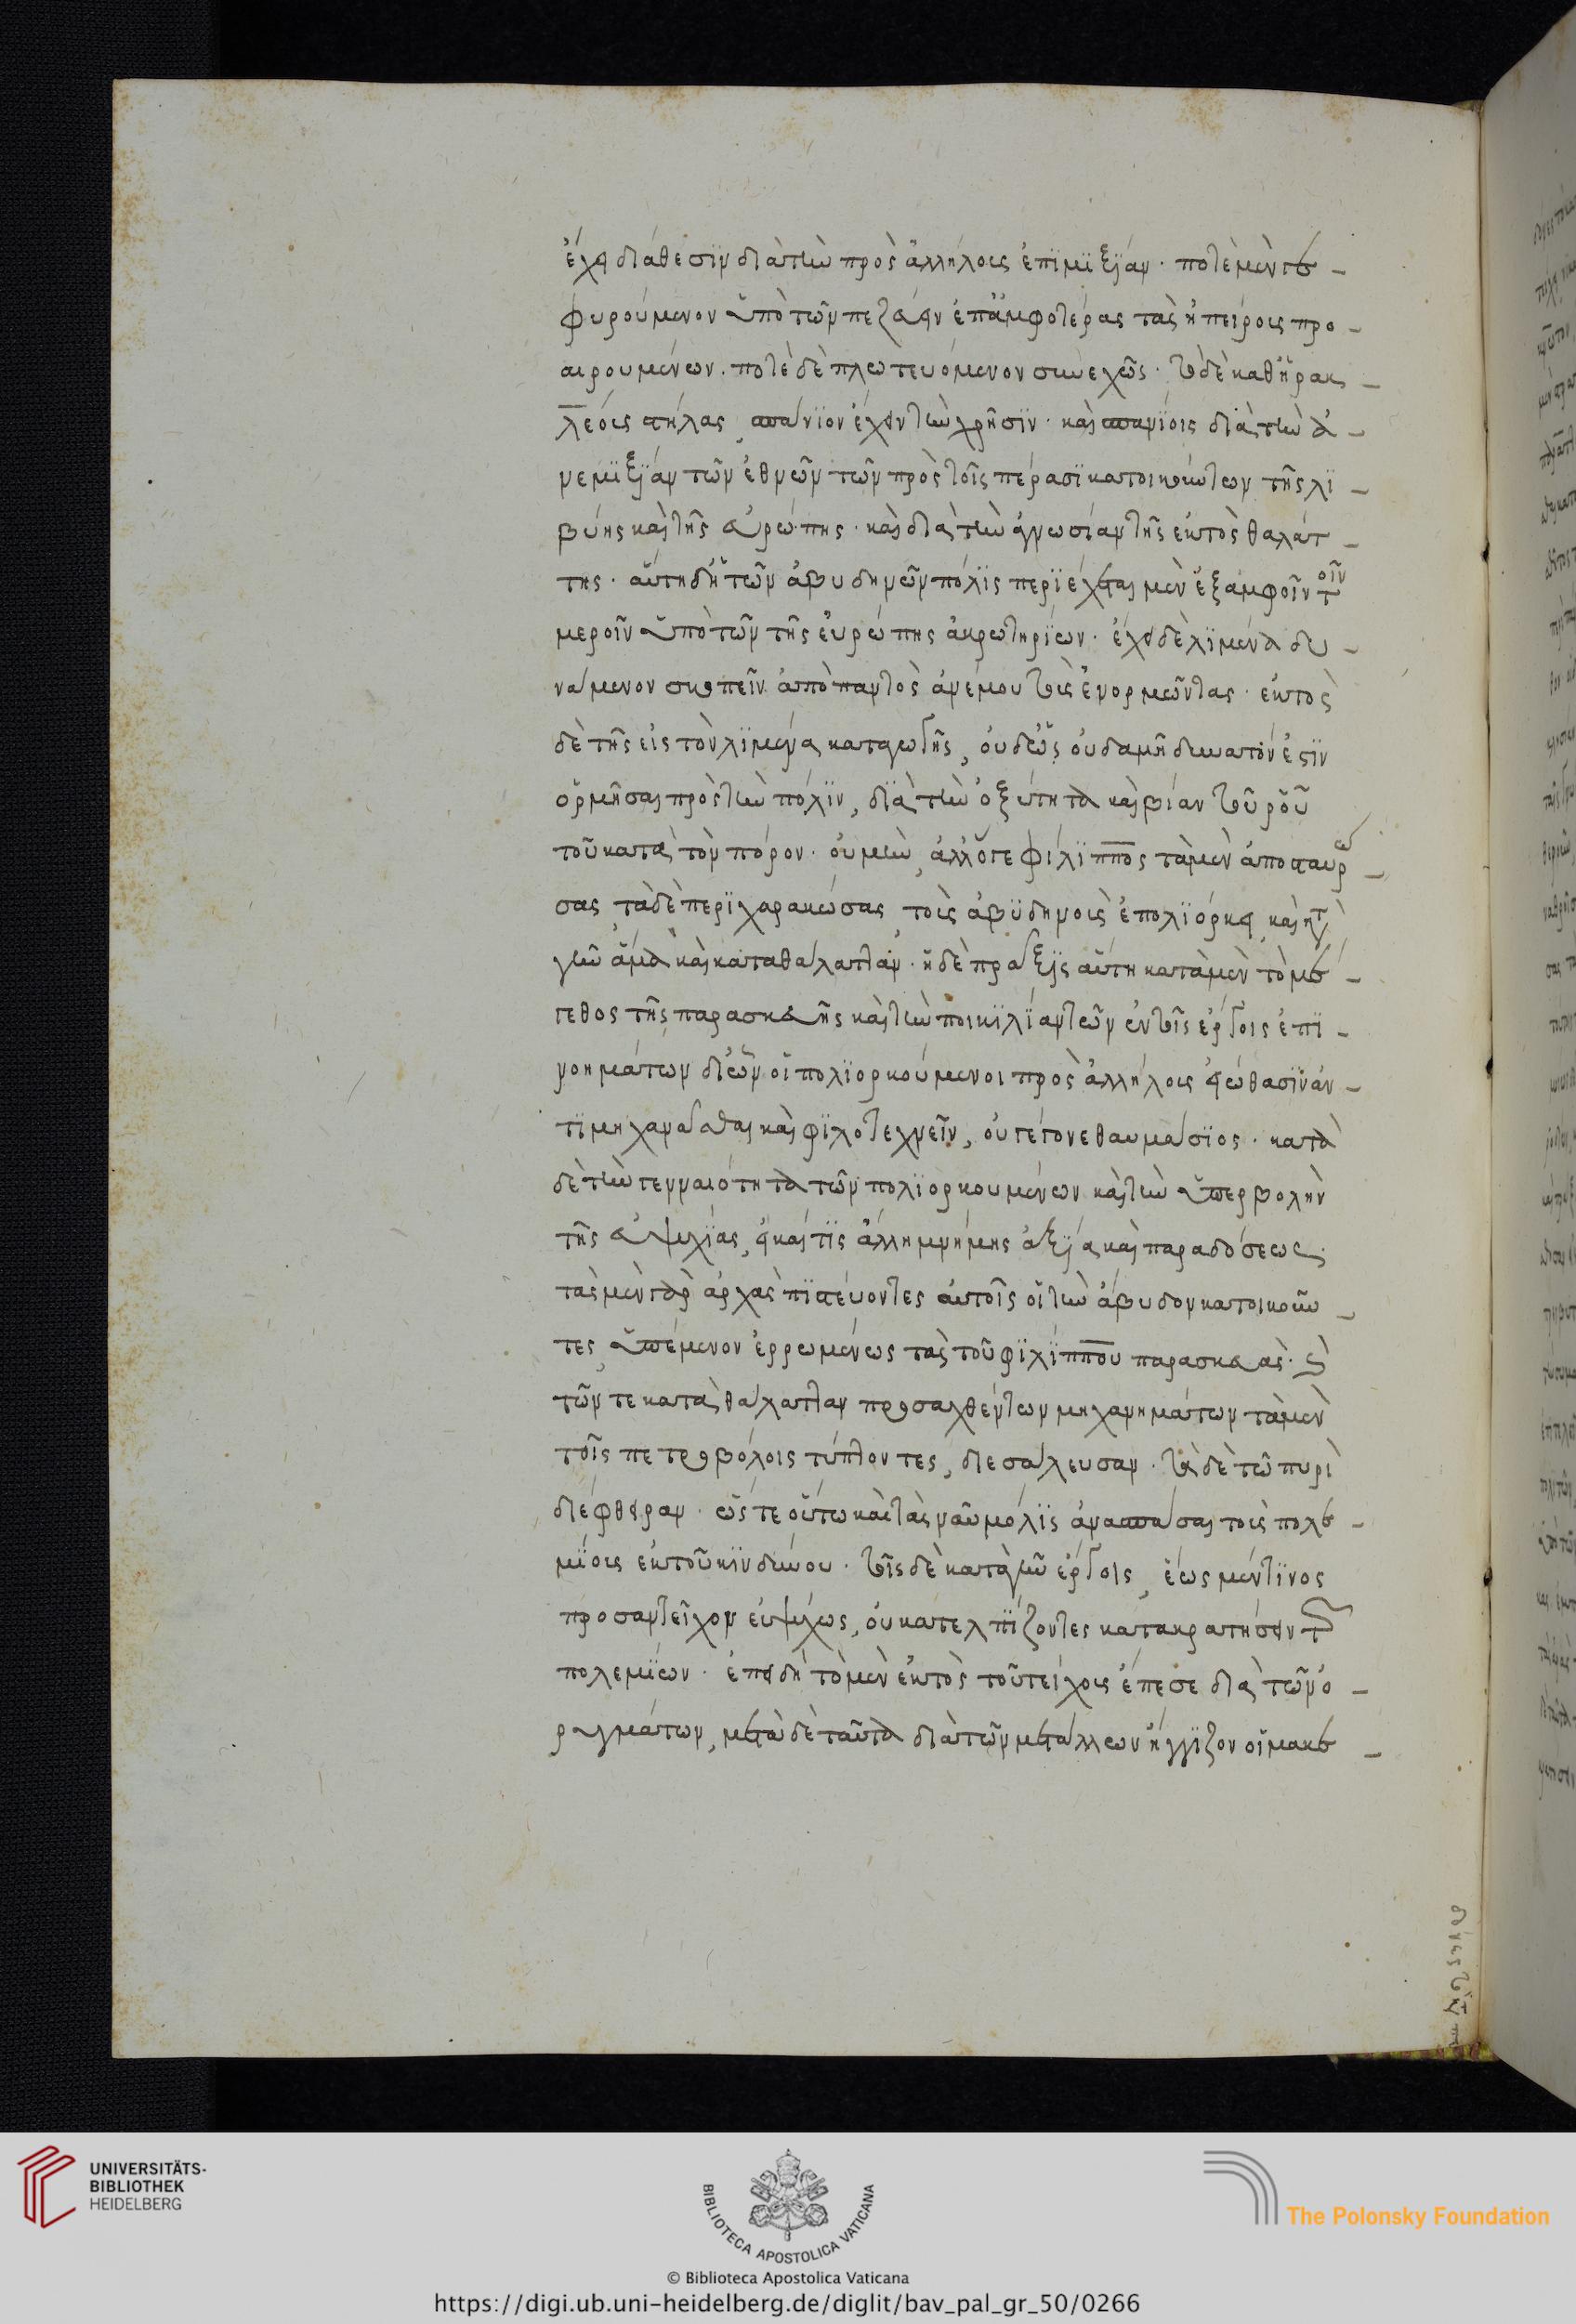 ἔχει διάθεσϊν διὰ τὴν πρὸς ἀλλήλους ἐπϊμϊξΐαν · ποτὲ μὲν γε -
φυρούμενον ὑπὸ τῶν πεζεύειν ἐπ' ἀμφοτέρας τὰς ἠπείρους προ -
αιρουμένων · ποτὲ δὲ πλωτευόμενον συνεχῶς · τὸ δὲ καθ' ἡρακ -
λέους στήλας, σπάνϊον ἔχειν τὴν χρῆσϊν · καὶ σπανΐοις διὰ τὴν ἀ -
νεμϊξΐαν τῶν ἐθνῶν τῶν πρὸς τοῖς πέρασϊ κατοικούντων τῆς λϊ -
βύης καὶ τῆς εὐρώπης · καὶ διὰ τὴν ἀγνωσίαν τῆς ἐκτὸς θαλάτ -
της · αὕτη δ' ἡ τῶν ἀβυδηνῶν πόλϊς περϊέχεται μὲν ἐξ ἀμφοῖν τοῖν
μεροῖν ὑπὸ τῶν τῆς εὐρώπης ἀκρωτηρΐων · ἔχει δὲ λϊμένα δυ -
νάμενον σκεπεῖν ἀπὸ παντὸς ἀνέμου τοὺς ἐνορμῶντας · ἐκτὸς
δὲ τῆς εἰς τὸν λϊμένα καταγωγῆς, οὐδέως οὐδαμῆ δυνατόν ἐστϊν
ὁρμῆσαι πρὸς τὴν πόλϊν, διὰ τὴν ὀξύτητα καὶ βίαν τοῦ ῥοῦ
τοῦ κατὰ τὸν πόρον · οὐ μὴν, ἀλλ' ὅγε φίλϊππος τὰ μὲν ἀποσταυρώ -
σας, τὰ δὲ περϊχαρακώσας, τοὺς ἀβϋδηνοὺς ἐπολϊόρκει, κατὰ
γῆν ἅμα καὶ κατὰ θάλατταν · ἡ δὲ πράξϊς αὕτη κατὰ μὲν τὸ μέ -
γεθος τῆς παρασκευῆς καὶ τὴν ποικϊλΐαν τῶν ἐν τοῖς ἔργοις ἐπϊ -
νοημάτων δι' ὧν οἱ πολϊορκούμενοι πρὸς ἀλλήλους εἰώθασϊν ἀν -
τϊμηχανᾶσθαι καὶ φϊλοτεχνεῖν, οὐ γέγονε θαυμάσϊος · κατὰ
δὲ τὴν γενναιότητα τῶν πολϊορκουμένων καὶ τὴν ὑπερβολὴν
τῆς εὐψυχΐας, εἰ καί τϊς ἄλλη μνήμης ἀξΐα καὶ παραδόσεως ·
τὰς μὲν γὰρ ἀρχὰς πϊστεύοντες αὑτοῖς οἱ τὴν ἄβυδον κατοικοῦν -
τες, ὑπέμενον ἐρρωμένως τὰς τοῦ φϊλΐππου παρασκευὰς · καὶ
τῶν τε κατὰ θάλατταν προσαχθέντων μηχανημάτων τὰ μὲν
τοῖς πετροβόλοις τύπτοντες, διεσάλευσαν · τὰ δὲ τῶ πυρὶ
διέφθειραν · ὥστε οὕτω καὶ τὰς ναῦς μόλϊς ἀνασπάσαι τοὺς πολε -
μΐους ἐκ τοῦ κϊνδύνου · τοῖς δὲ κατὰ γῆν ἔργοις, ἕως μέν τϊνος
προσαντεῖχον εὐψύχως, οὐ κατελπΐζοντες κατακρατήσειν τῶν
πολεμΐων · ἐπειδὴ τὸ μὲν ἐκτὸς τοῦ τείχους ἔπεσε διὰ τῶν ὀ -
ρυγμάτων, μετὰ δὲ ταῦτα διὰ τῶν μετάλλων ἤγγϊζον οἱ μακε -
UNIVERSITÄTS-
BIBLIOTHEK
HEIDELBERG
BIBLIOTECA APOSTOLICA VATICANA
The Polonsky Foundation
© Biblioteca Apostolica Vaticana
https://digi.ub.uni-heidelberg.de/diglit/bav_pal_gr_50/0266